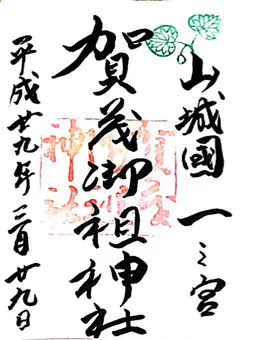 山城國 一之宮
賀茂御祖神社
平成廿九年 三月廿九日